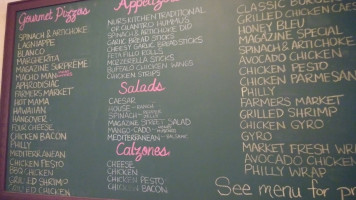 Gourmet Pizzas
SPINACH & ARTICHOKE
LAGNIAPPE
BIANCO
MARGHERITA
MAGAZINE SUPREME
MACHO MAN
APHRODISIAC
FARMERS MARKET
HOT MAMA
HAWAIIAN
HANGOVER
FOUR CHEESE
CHICKEN BACON
PHILLY
MEDITERRANEAN
CHICKEN PESTO
BBQ CHICKEN
GRILLED SHRIMP
GRILLED CHICKEN
Appetizers
NUR'S KITCHEN TRADITIONAL
OR CILANTRO HUMMUS
SPINACH & ARTICHOKE DIP
GARLIC BREAD STICKS
CHEESY GARLIC BREAD STICKS
FETA FILLO ROLLS
MOZZARELLA STICKS
BUFFALO CHICKEN WINGS
CHICKEN STRIPS
Salads
CAESAR
HOUSE
SPINACH
MAGAZINE STREET SALAD
MANGO-CADO
MEDITERRANEAN
Calzones
CHEESE
CHICKEN
CHICKEN PESTO
CHICKEN BACON
CLASSIC BURGER
GRILLED CHICKEN CAES
HONEY BLEU
MAGAZINE SPECIAL
SPINACH & ARTICHOKE
AVOCADO CHICKEN
CHICKEN PESTO
CHICKEN PARMESAN
PHILLY
FARMERS MARKET
GRILLED SHRIMP
CHICKEN GYRO
GYRO
MARKET FRESH WR
AVOCADO CHICKEN
PHILLY WRAP
See menu for pr